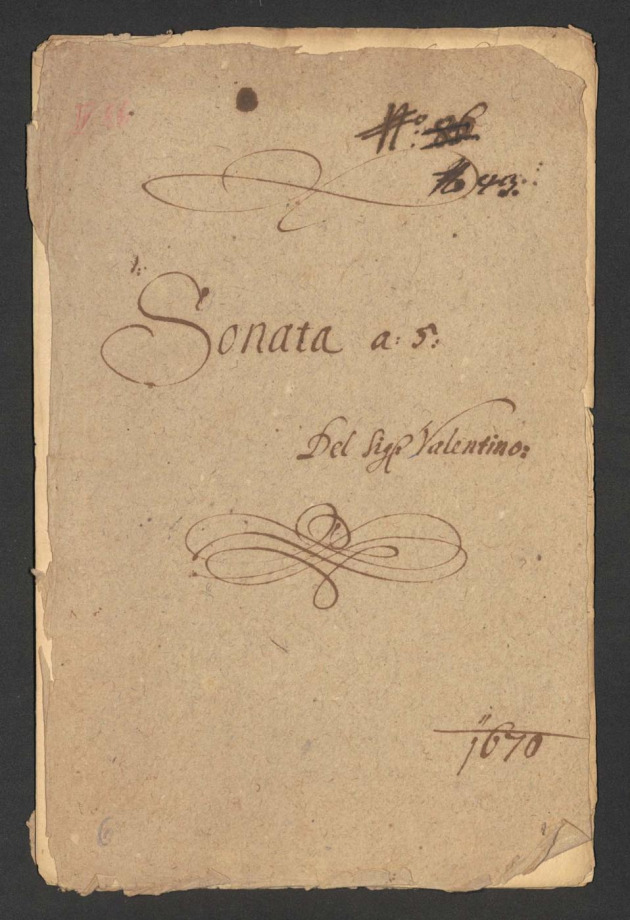 No: 86
No 43:
1:
Sonata a: 5:
Del Sigr Valentino:
1670
6